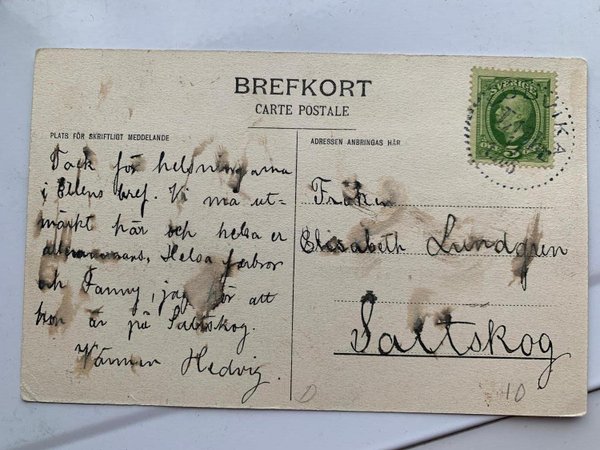 BREFKORT
CARTE POSTALE
PLATS FÖR SKRIFTLIGT MEDDELANDE
Tack för helsningarna
i Ellens bref. Vi må ut-
märkt här och helsa er
allesammans. Helsa farbror
och Fanny, jag hör att
hon är på Saltskog.
Vännen Hedvig.
ADRESSEN ANBRINGAS HÄR
Fröken
Elisabeth Lundgren
Saltskog
SVERIGE
5
VIKA
D
10